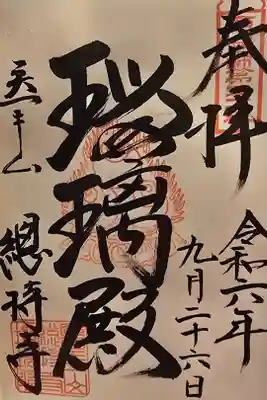 奉拝
令和六年
九月二十六日
瑠璃殿
總持寺